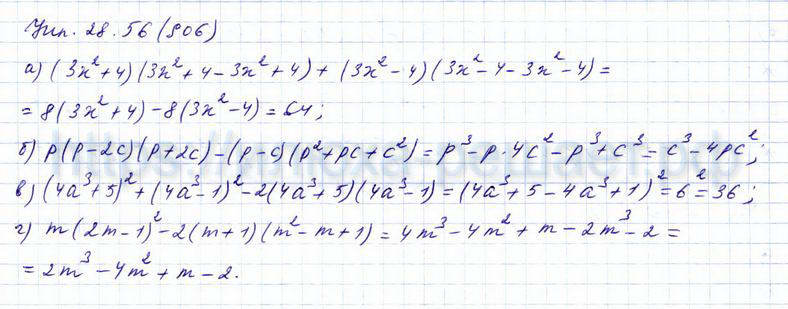 Упп. 28.56 (806)
а) (3x²+4)(3x²+4-3x²+4)+(3x²-4)(3x²-4-3x²-4)=
=8(3x²+4)-8(3x²-4)=64;
б) p(p-2c)(p+2c)-(p-c)(p²+pc+c²)=p³-p·4c²-p³+c³=c³-4pc²;
в) (4a³+5)²+(4a³-1)²-2(4a³+5)(4a³-1)=(4a³+5-4a³+1)²=6²=36;
г) m(2m-1)²-2(m+1)(m²-m+1)=4m³-4m²+m-2m³-2=
=2m³-4m²+m-2.